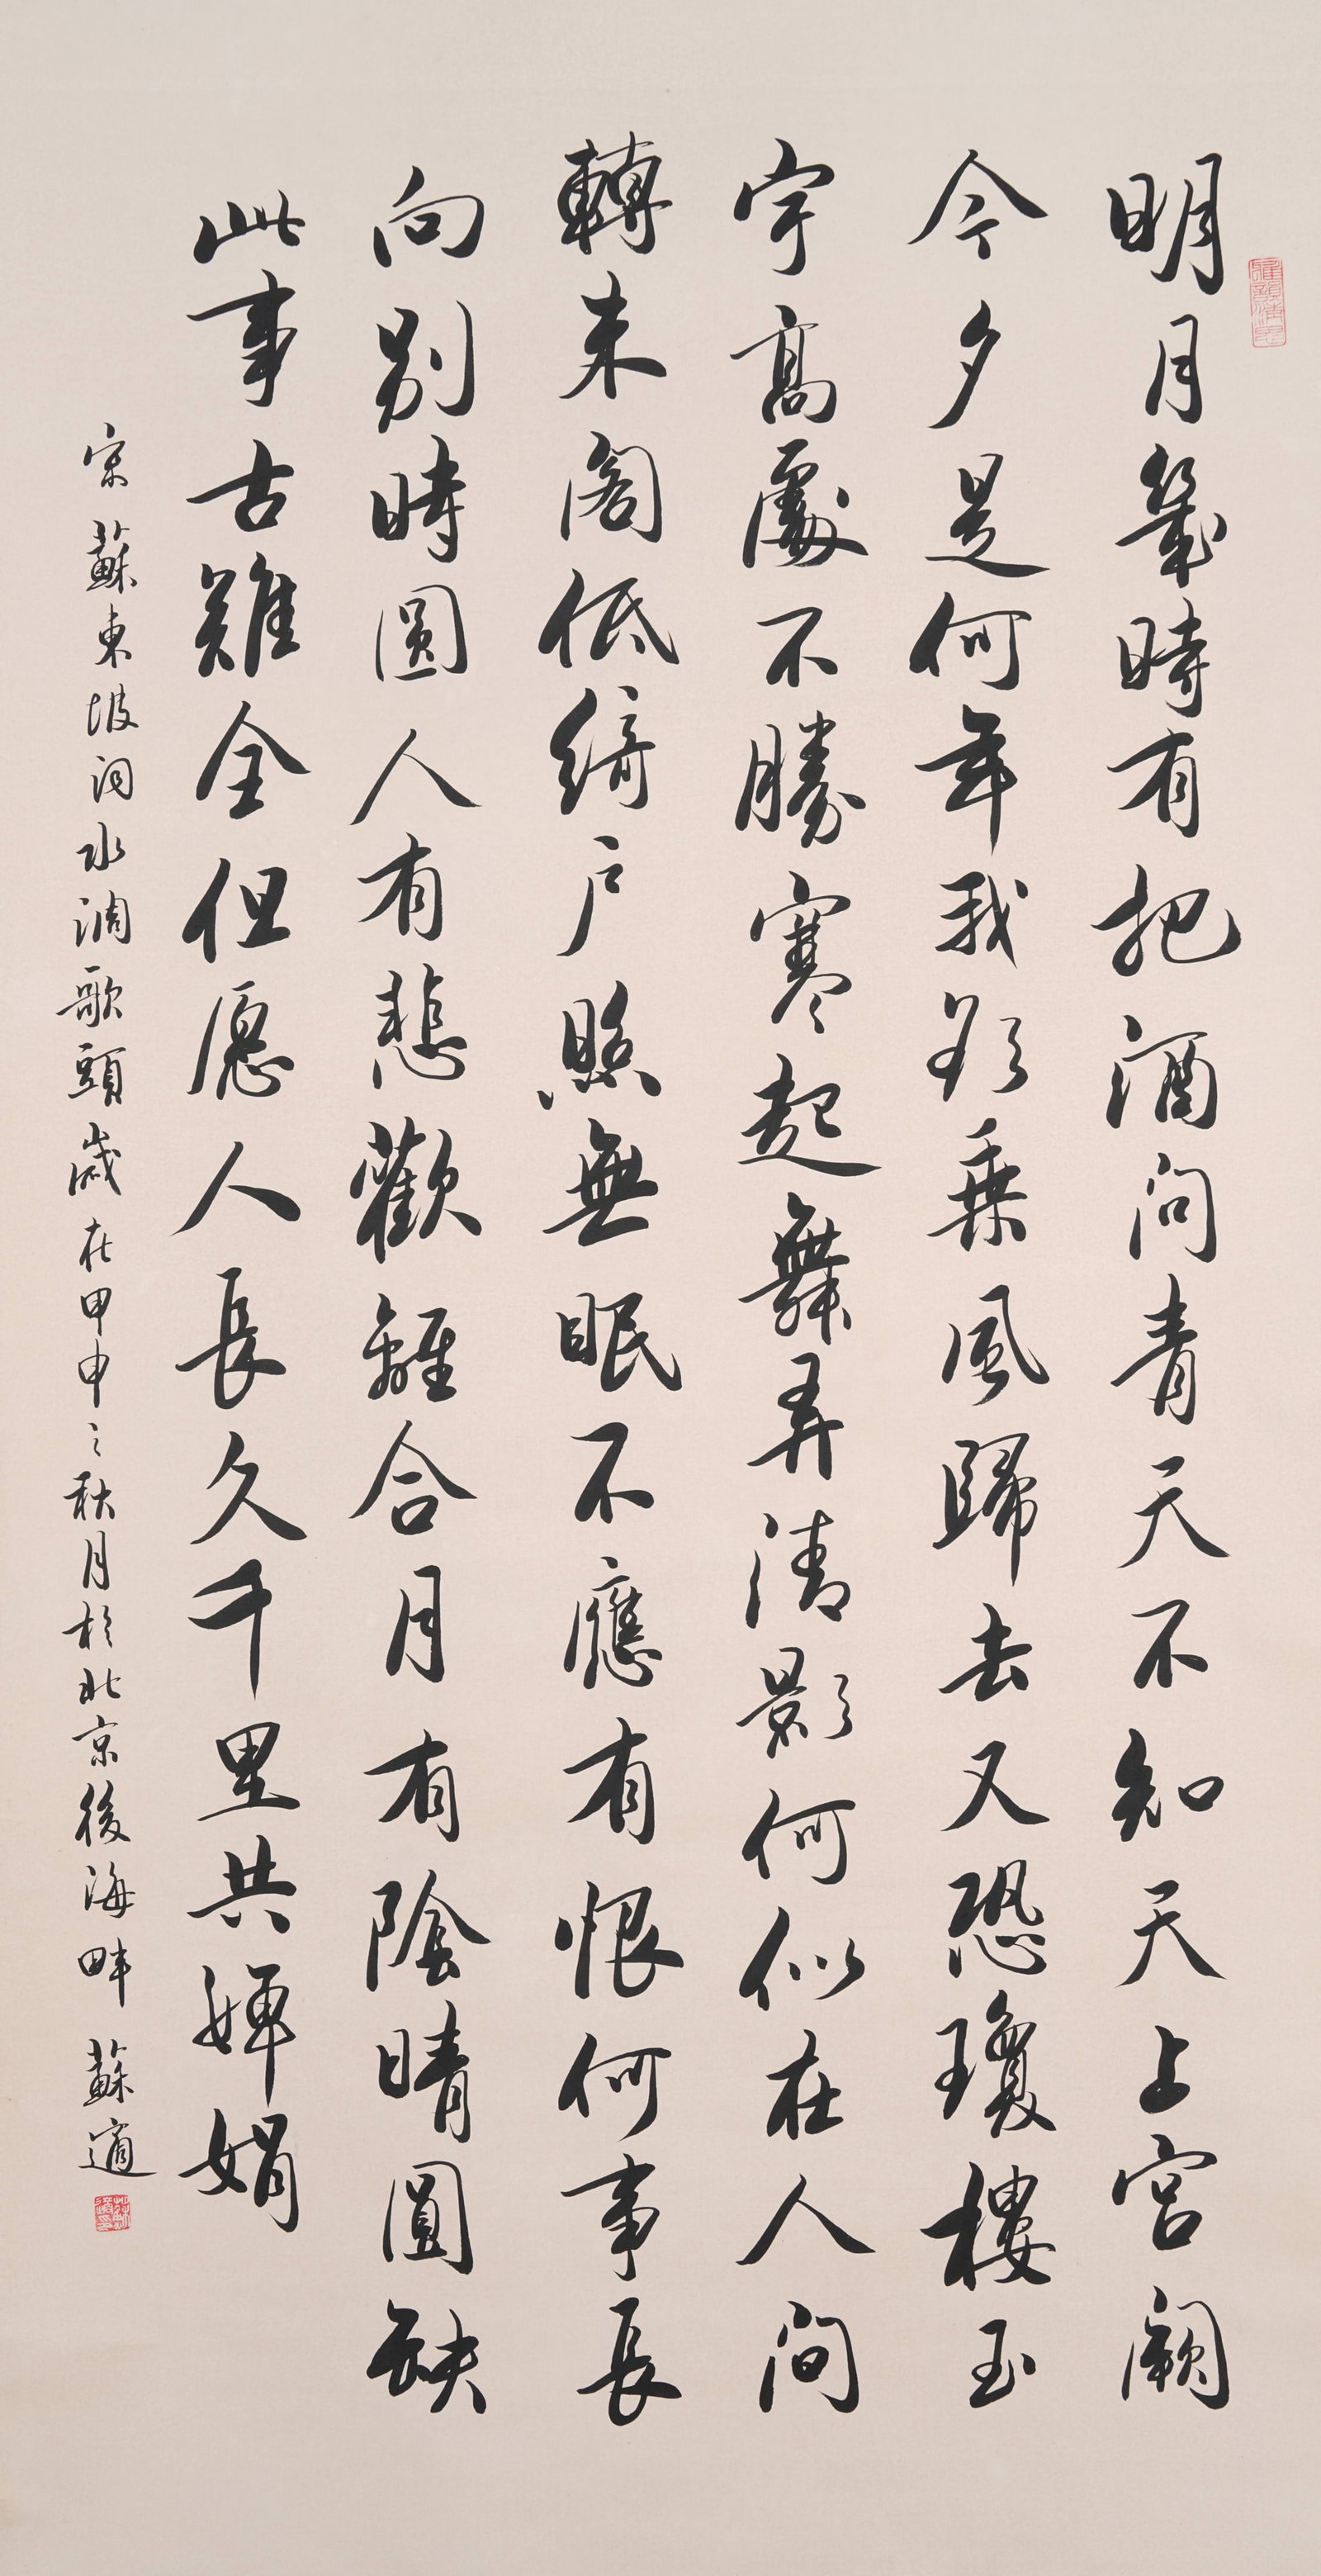 明月幾時有把酒問青天不知天上宮闕
今夕是何年我欲乘風歸去又恐瓊樓玉
宇高處不勝寒起舞弄清影何似在人間
轉朱閣低綺户照無眠不應有恨何事長
向別時圓人有悲歡離合月有陰晴圓缺
此事古難全但愿人長久千里共嬋娟
宋蘇東坡词水调歌頭歲在甲申之秋月於北京後海畔蘇適